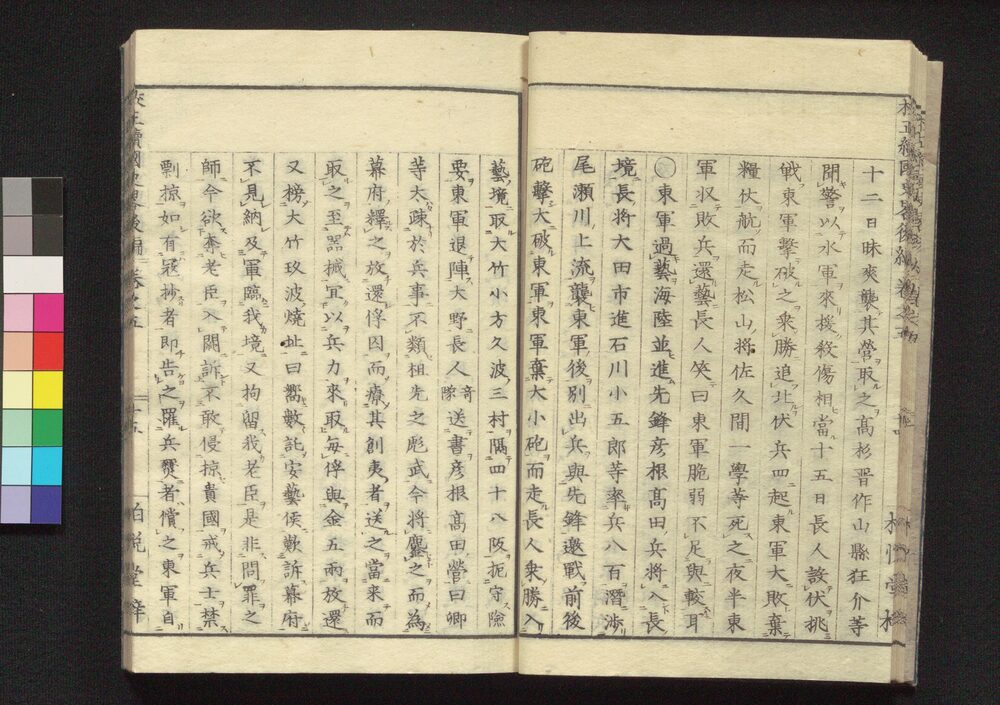 十二日昧爽襲其營取之高杉晋作山縣狂介等
聞警以水軍來援殺傷相當十五日長人設伏挑
戰東軍擊破之乘勝追北伏兵四起東軍大敗棄
糧仗航而走松山將佐久間一學等死之夜半東
軍収敗兵還藝長人笑曰東軍脆弱不足與較耳
○東軍過藝海陸並進先鋒彦根髙田兵將入長
境長將大田市進石川小五郎等率兵八百潛渉
尾瀬川上流襲東軍後別出兵與先鋒邀戰前後
砲擊大破東軍東軍棄大小砲而走長人乘勝入
藝境取大竹小方久波三村隔四十八阪扼守險
要東軍退陣大野長人奇隊送書彦根髙田營曰卿
等太疎於兵事不類祖先之彪武今將鏖之而為
幕府釋之放還俘囚而療其創夷者送之當来而
取之至器械冝以兵力來取每俘與金五兩放還
又榜大竹玖波燒址曰嚮數託安藝侯歎訴幕府
不見納及軍臨我境又拘留我老臣是非問罪之
師今欲奪老臣入闕訴不敢侵掠貴國戒兵士禁
剽掠如有冦抄者即告之羅兵燹者償之東軍自
十五